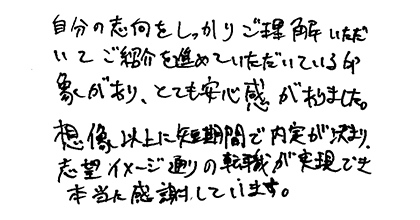 自分の志向をしっかりご理解いただ
いてご紹介を進めていただいている印
象があり、とても安心感がありました。
想像以上に短期間で内定が決まり、
志望イメージ通りの転職が実現でき
本当に感謝しています。